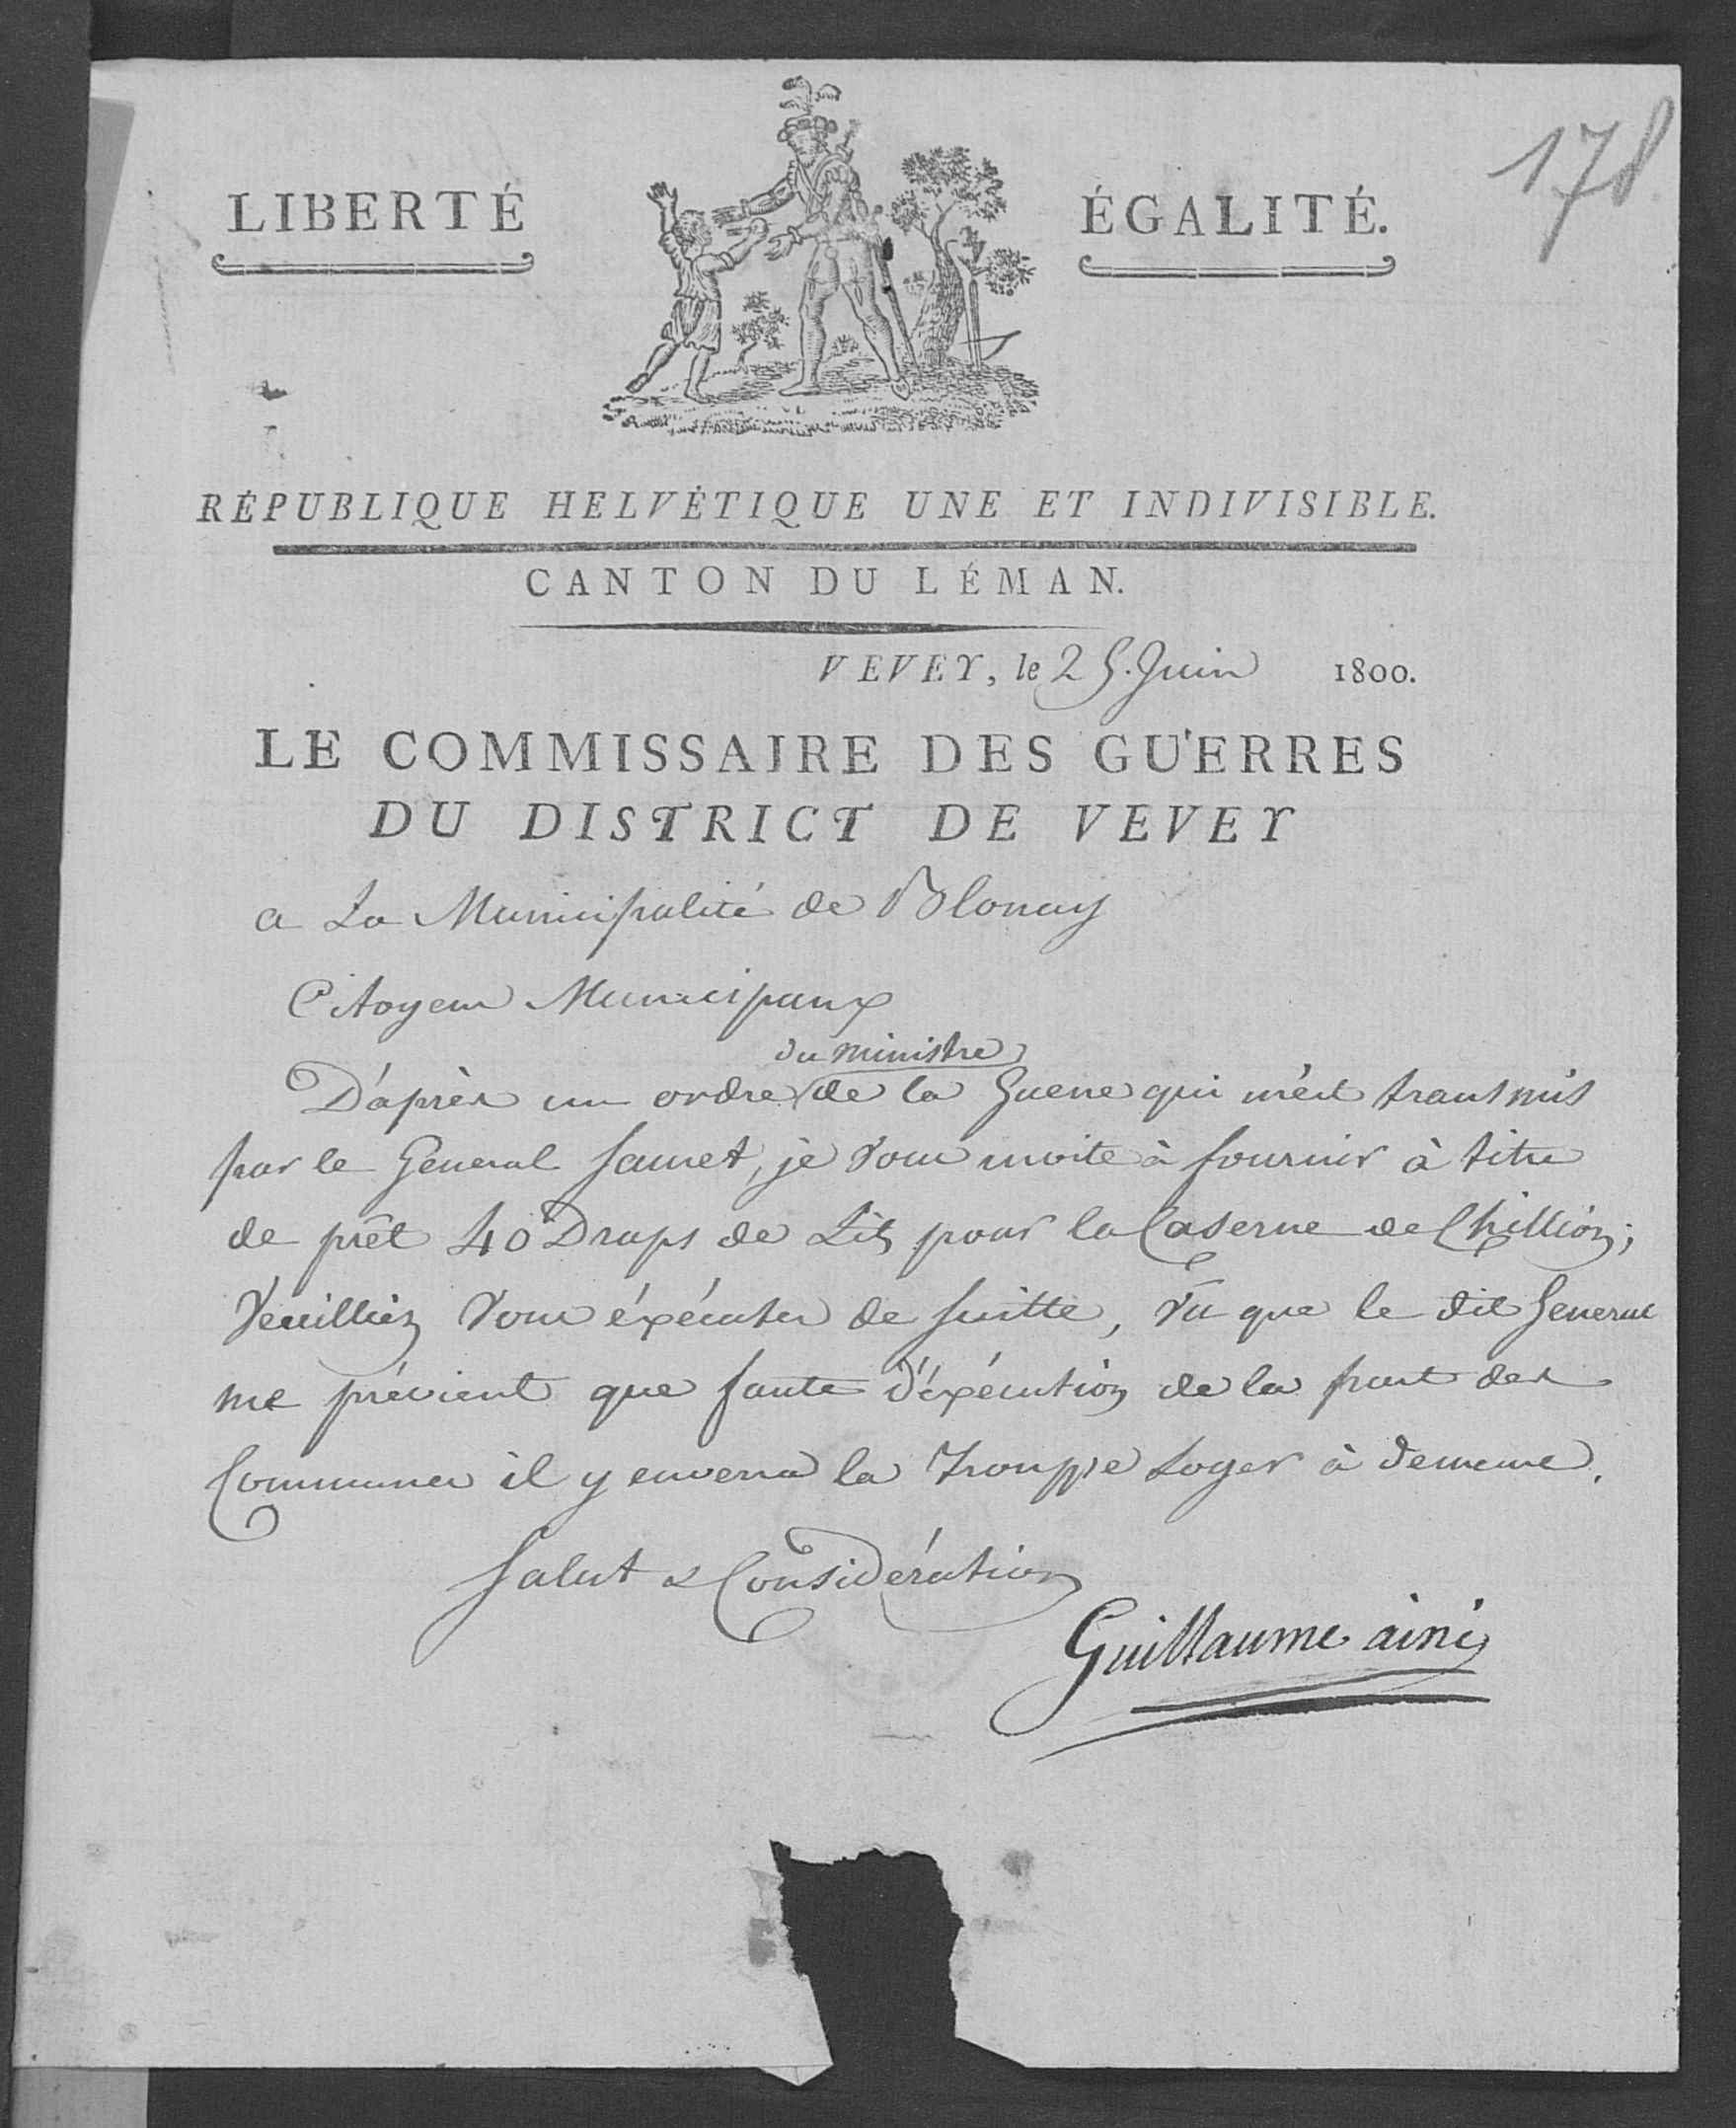 178
LIBERTÉ ÉGALITÉ.
RÉPUBLIQUE HELVÉTIQUE UNE ET INDIVISIBLE.
CANTON DU LÉMAN.
VEVEY, le 25. Juin 1800.
LE COMMISSAIRE DES GUERRES
DU DISTRICT DE VEVEY
a La Municipalité de Blonay
Citoyens Municipaux
du ministre
D'après un ordre de la Guerre qui m'est transmis
par le General je vous invite à fournir à titre
de prêt 40 Draps de Lit pour la Caserne de Chillion;
Veuilliez vous éxécuter de suitte, vû que le dit General
me prévient que faute d'éxécution de la part des
Communes il y enverra la Trouppe Loger à demeure.
Salut & Considération
Guillaume ainé